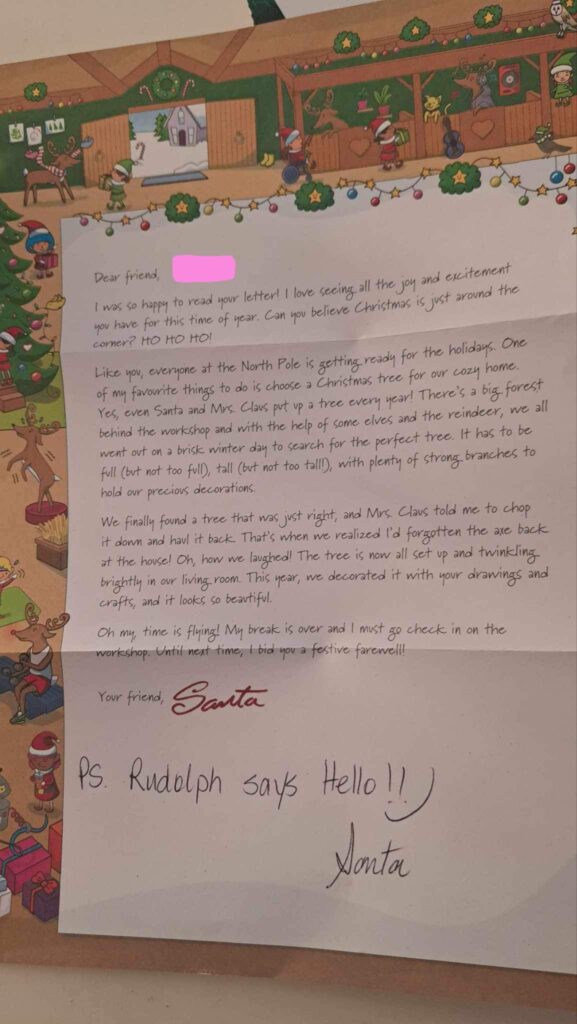 Dear friend,
I was so happy to read your letter! I love seeing all the joy and excitement
you have for this time of year. Can you believe Christmas is just around the
corner? HO HO HO!
Like you, everyone at the North Pole is getting ready for the holidays. One
of my favourite things to do is choose a Christmas tree for our cozy home.
Yes, even Santa and Mrs. Claus put up a tree every year! There's a big forest
behind the workshop and with the help of some elves and the reindeer, we all
went out on a brisk winter day to search for the perfect tree. It has to be
full (but not too full), tall (but not too tall!), with plenty of strong branches to
hold our precious decorations.
We finally found a tree that was just right, and Mrs. Claus told me to chop
it down and haul it back. That's when we realized I'd forgotten the axe back
at the house! Oh, how we laughed! The tree is now all set up and twinkling
brightly in our living room. This year, we decorated it with your drawings and
crafts, and it looks so beautiful.
Oh my, time is flying! My break is over and I must go check in on the
workshop. Until next time, I bid you a festive farewell!
Your friend, Santa
PS. Rudolph says Hello!! :)
Santa